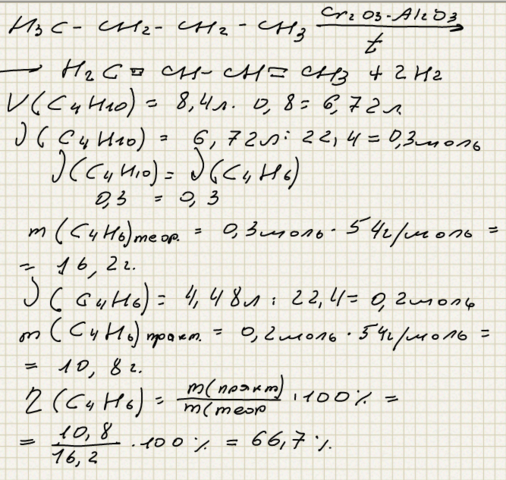 H3C - CH2 - CH2 - CH3 Cr2O3-Al2O3 / t →
→ H2C = CH - CH = CH3 + 2H2
V(C4H10) = 8,4л. 0,8 = 6,72л
ν(C4H10) = 6,72л : 22,4 = 0,3моль
ν(C4H10) = ν(C4H6)
0,3 = 0,3
m(C4H6)теор. = 0,3моль · 54г/моль =
= 16,2г.
ν(C4H6) = 4,48л : 22,4 = 0,2моль
m(C4H6)практ. = 0,2моль · 54г/моль =
= 10,8г.
η(C4H6) = m(практ) / m(теор · 100% =
= 10,8 / 16,2 · 100% = 66,7%.